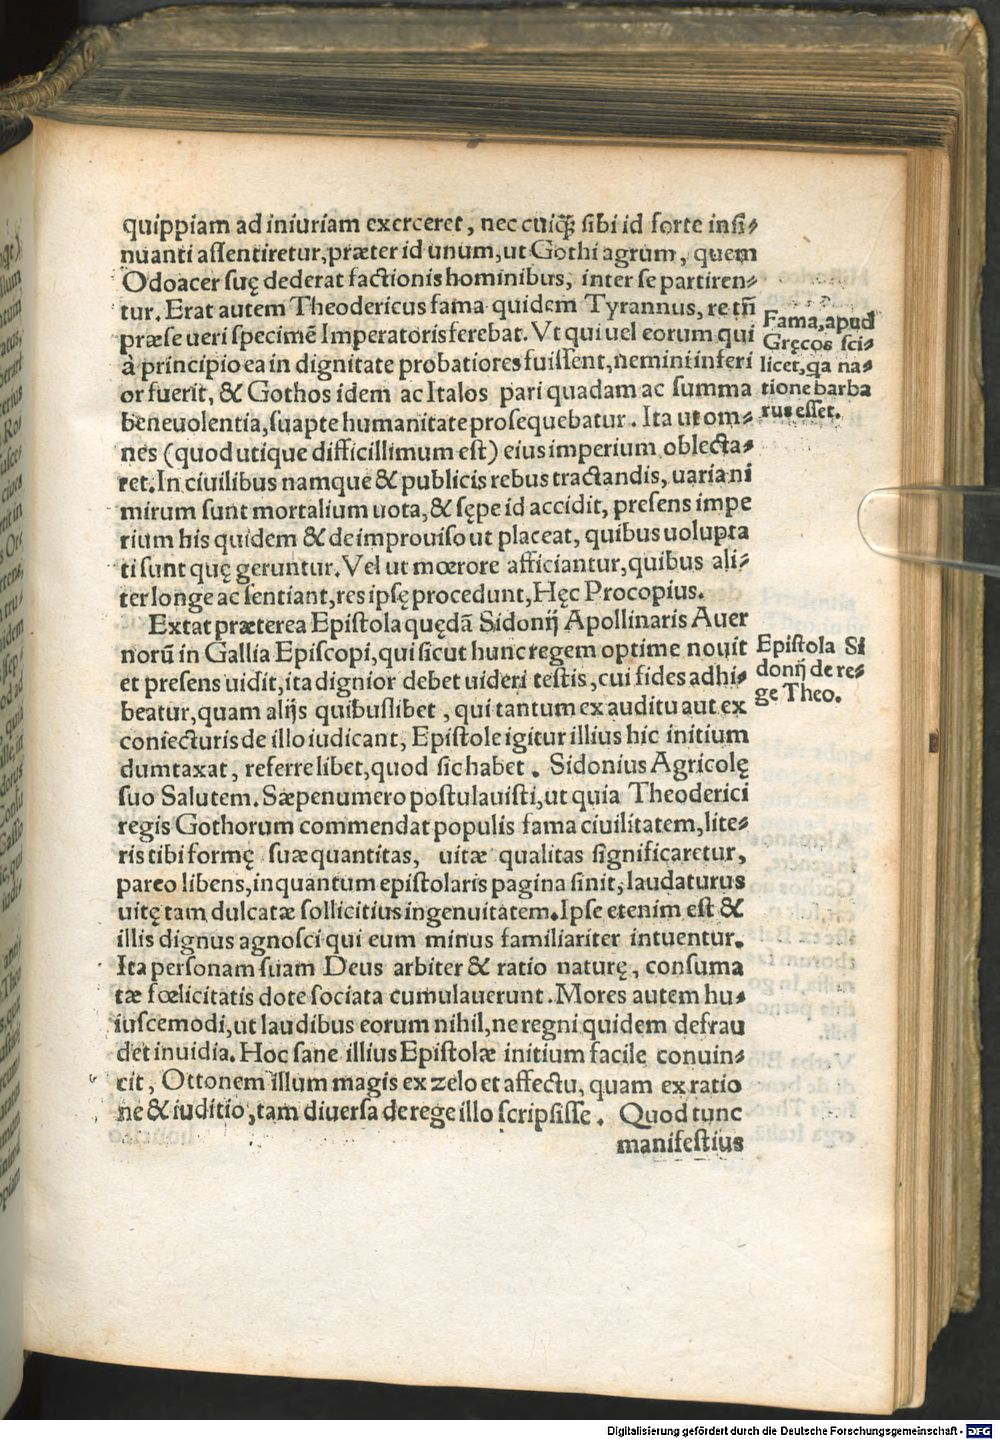 quippiam ad iniuriam exerceret, nec cuiq̃ sibi id forte insi⸗
nuanti assentiretur, præter id unum, ut Gothi agrum, quem
Odoacer suę dederat factionis hominibus, inter se partiren⸗
tur. Erat autem Theodericus fama quidem Tyrannus, re tñ
præse ueri specimẽ Imperatoris ferebat. Vt qui uel eorum qui
à principio ea in dignitate probatiores fuissent, nemini inferi
or fuerit, & Gothos idem ac Italos pari quadam ac summa
beneuolentia, suapte humanitate prosequebatur. Ita ut om⸗
nes (quod utique difficillimum est) eius imperium oblecta⸗
ret. In ciuilibus namque & publicis rebus tractandis, uaria ni
mirum sunt mortalium uota, & sępe id accidit, presens impe
rium his quidem & de improuiso ut placeat, quibus uolupta
ti sunt quę geruntur. Vel ut mœrore afficiantur, quibus ali⸗
ter longe ac sentiant, res ipsę procedunt, Hęc Procopius.
Extat præterea Epistola quędã Sidonij Apollinaris Auer
norũ in Gallia Episcopi, qui sicut hunc regem optime nouit
et presens uidit, ita dignior debet uideri testis, cui fides adhi⸗
beatur, quam alijs quibuslibet, qui tantum ex auditu aut ex
coniecturis de illo iudicant, Epistole igitur illius hic initium
dumtaxat, referre libet, quod sic habet. Sidonius Agricolę
suo Salutem. Sæpenumero postulauisti, ut quia Theoderici
regis Gothorum commendat populis fama ciuilitatem, lite⸗
ris tibi formę suæ quantitas, uitæ qualitas significaretur,
pareo libens, inquantum epistolaris pagina sinit, laudaturus
uitę tam dulcatæ sollicitius ingenuitatem. Ipse etenim est &
illis dignus agnosci qui eum minus familiariter intuentur.
Ita personam suam Deus arbiter & ratio naturę, consuma
tæ fœlicitatis dote sociata cumulauerunt. Mores autem hu⸗
iuscemodi, ut laudibus eorum nihil, ne regni quidem defrau
det inuidia. Hoc sane illius Epistolæ initium facile conuin⸗
cit, Ottonem illum magis ex zelo et affectu, quam ex ratio
ne & iuditio, tam diuersa de rege illo scripsisse. Quod tunc
manifestius
Fama, apud
Gręcos sci⸗
licet, qa na⸗
tione barba
rus esset.
Epistola Si
donij de re⸗
ge Theo.
Digitalisierung gefördert durch die Deutsche Forschungsgemeinschaft - DFG